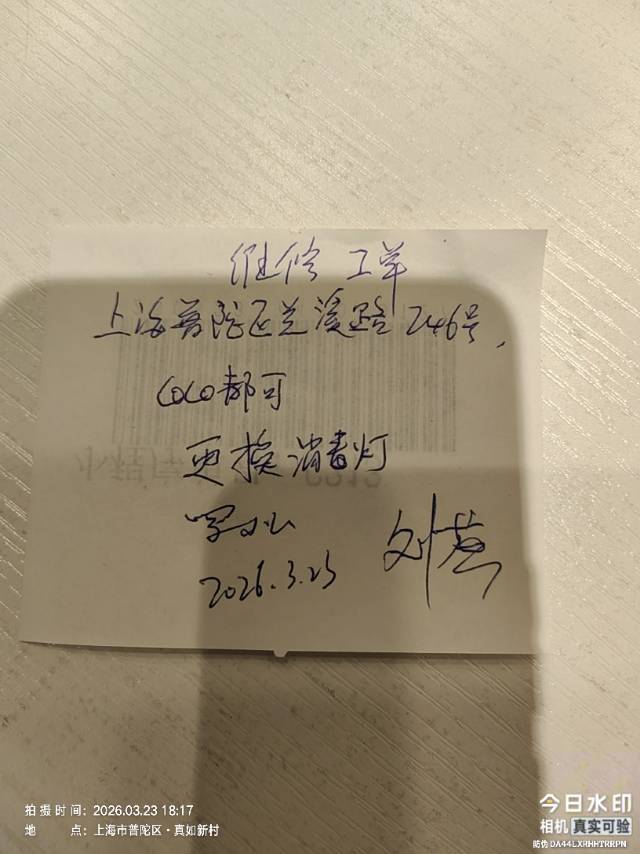 维修工单
上海普陀区兰溪路246号,
COCO都可
更换消毒灯
2026.3.23
刘燕
拍摄时间：2026.03.23 18:17
地点：上海市普陀区·真如新村
今日水印
相机 真实可验
防伪 DA44LXRHHTRRPN